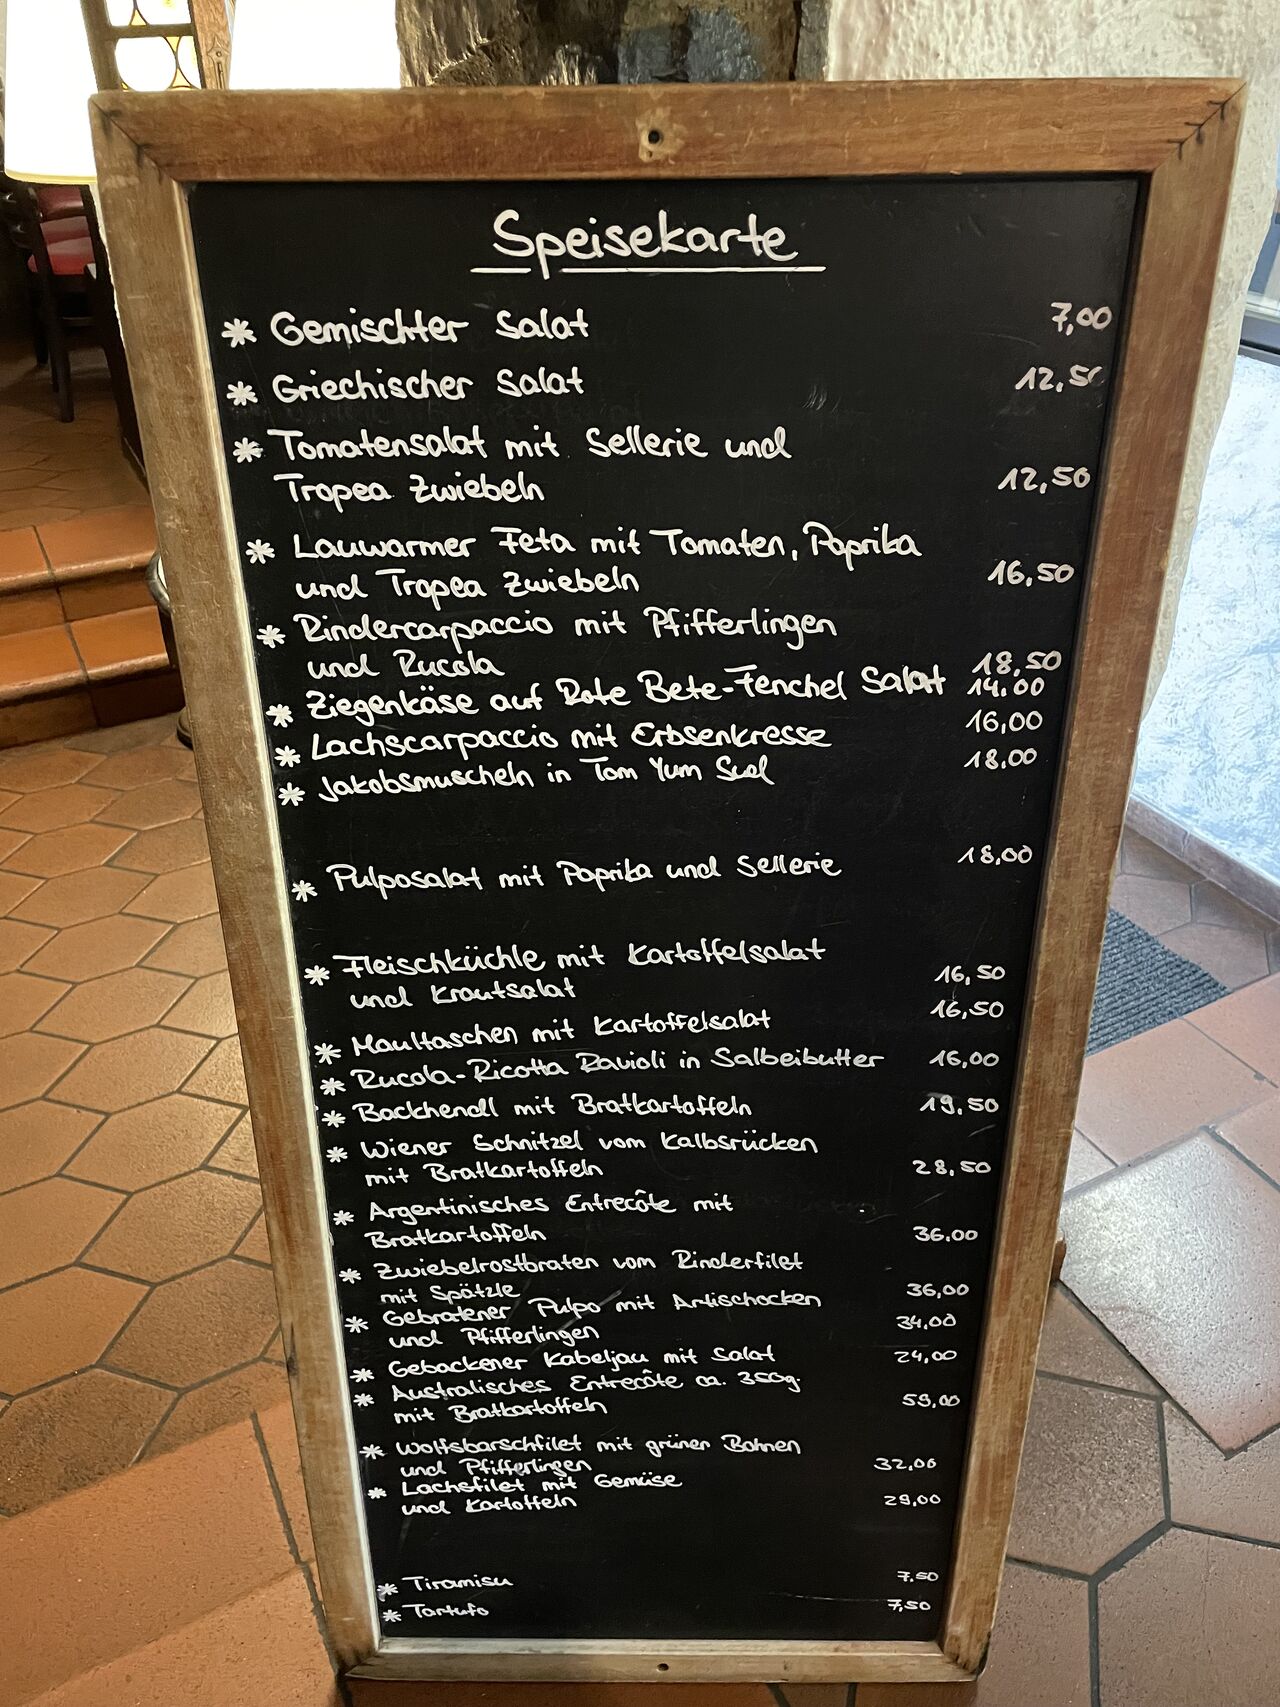 Speisekarte
* Gemischter Salat 7,00
* Griechischer Salat 12,50
* Tomatensalat mit Sellerie und
Tropea Zwiebeln 12,50
* Lauwarmer Feta mit Tomaten, Paprika
und Tropea Zwiebeln 16,50
* Rindercarpaccio mit Pfifferlingen
und Rucola 18,50
* Ziegenkäse auf Rote Bete-Fenchel Salat 14.00
* Lachscarpaccio mit Erbsenkresse 16,00
* Jakobsmuscheln in Tom Yum Sud 18.00
* Pulposalat mit Paprika und Sellerie 18,00
* Fleischküchle mit Kartoffelsalat
und Krautsalat 16,50
* Maultaschen mit Kartoffelsalat 16,50
* Rucola-Ricotta Ravioli in Salbeibutter 16,00
* Backhendl mit Bratkartoffeln 19,50
* Wiener Schnitzel vom Kalbsrücken
mit Bratkartoffeln 28,50
* Argentinisches Entrecôte mit
Bratkartoffeln 36.00
* Zwiebelrostbraten vom Rinderfilet
mit Spätzle 36,00
* Gebratener Pulpo mit Artischocken
und Pfifferlingen 34,00
* Gebackener Kabeljau mit Salat 24,00
* Australisches Entrecôte ca. 350g.
mit Bratkartoffeln 59,00
* Wolfsbarschfilet mit grünen Bohnen
und Pfifferlingen 32,00
* Lachsfilet mit Gemüse
und Kartoffeln 29,00
* Tiramisu 7,50
* Tartufo 7,50